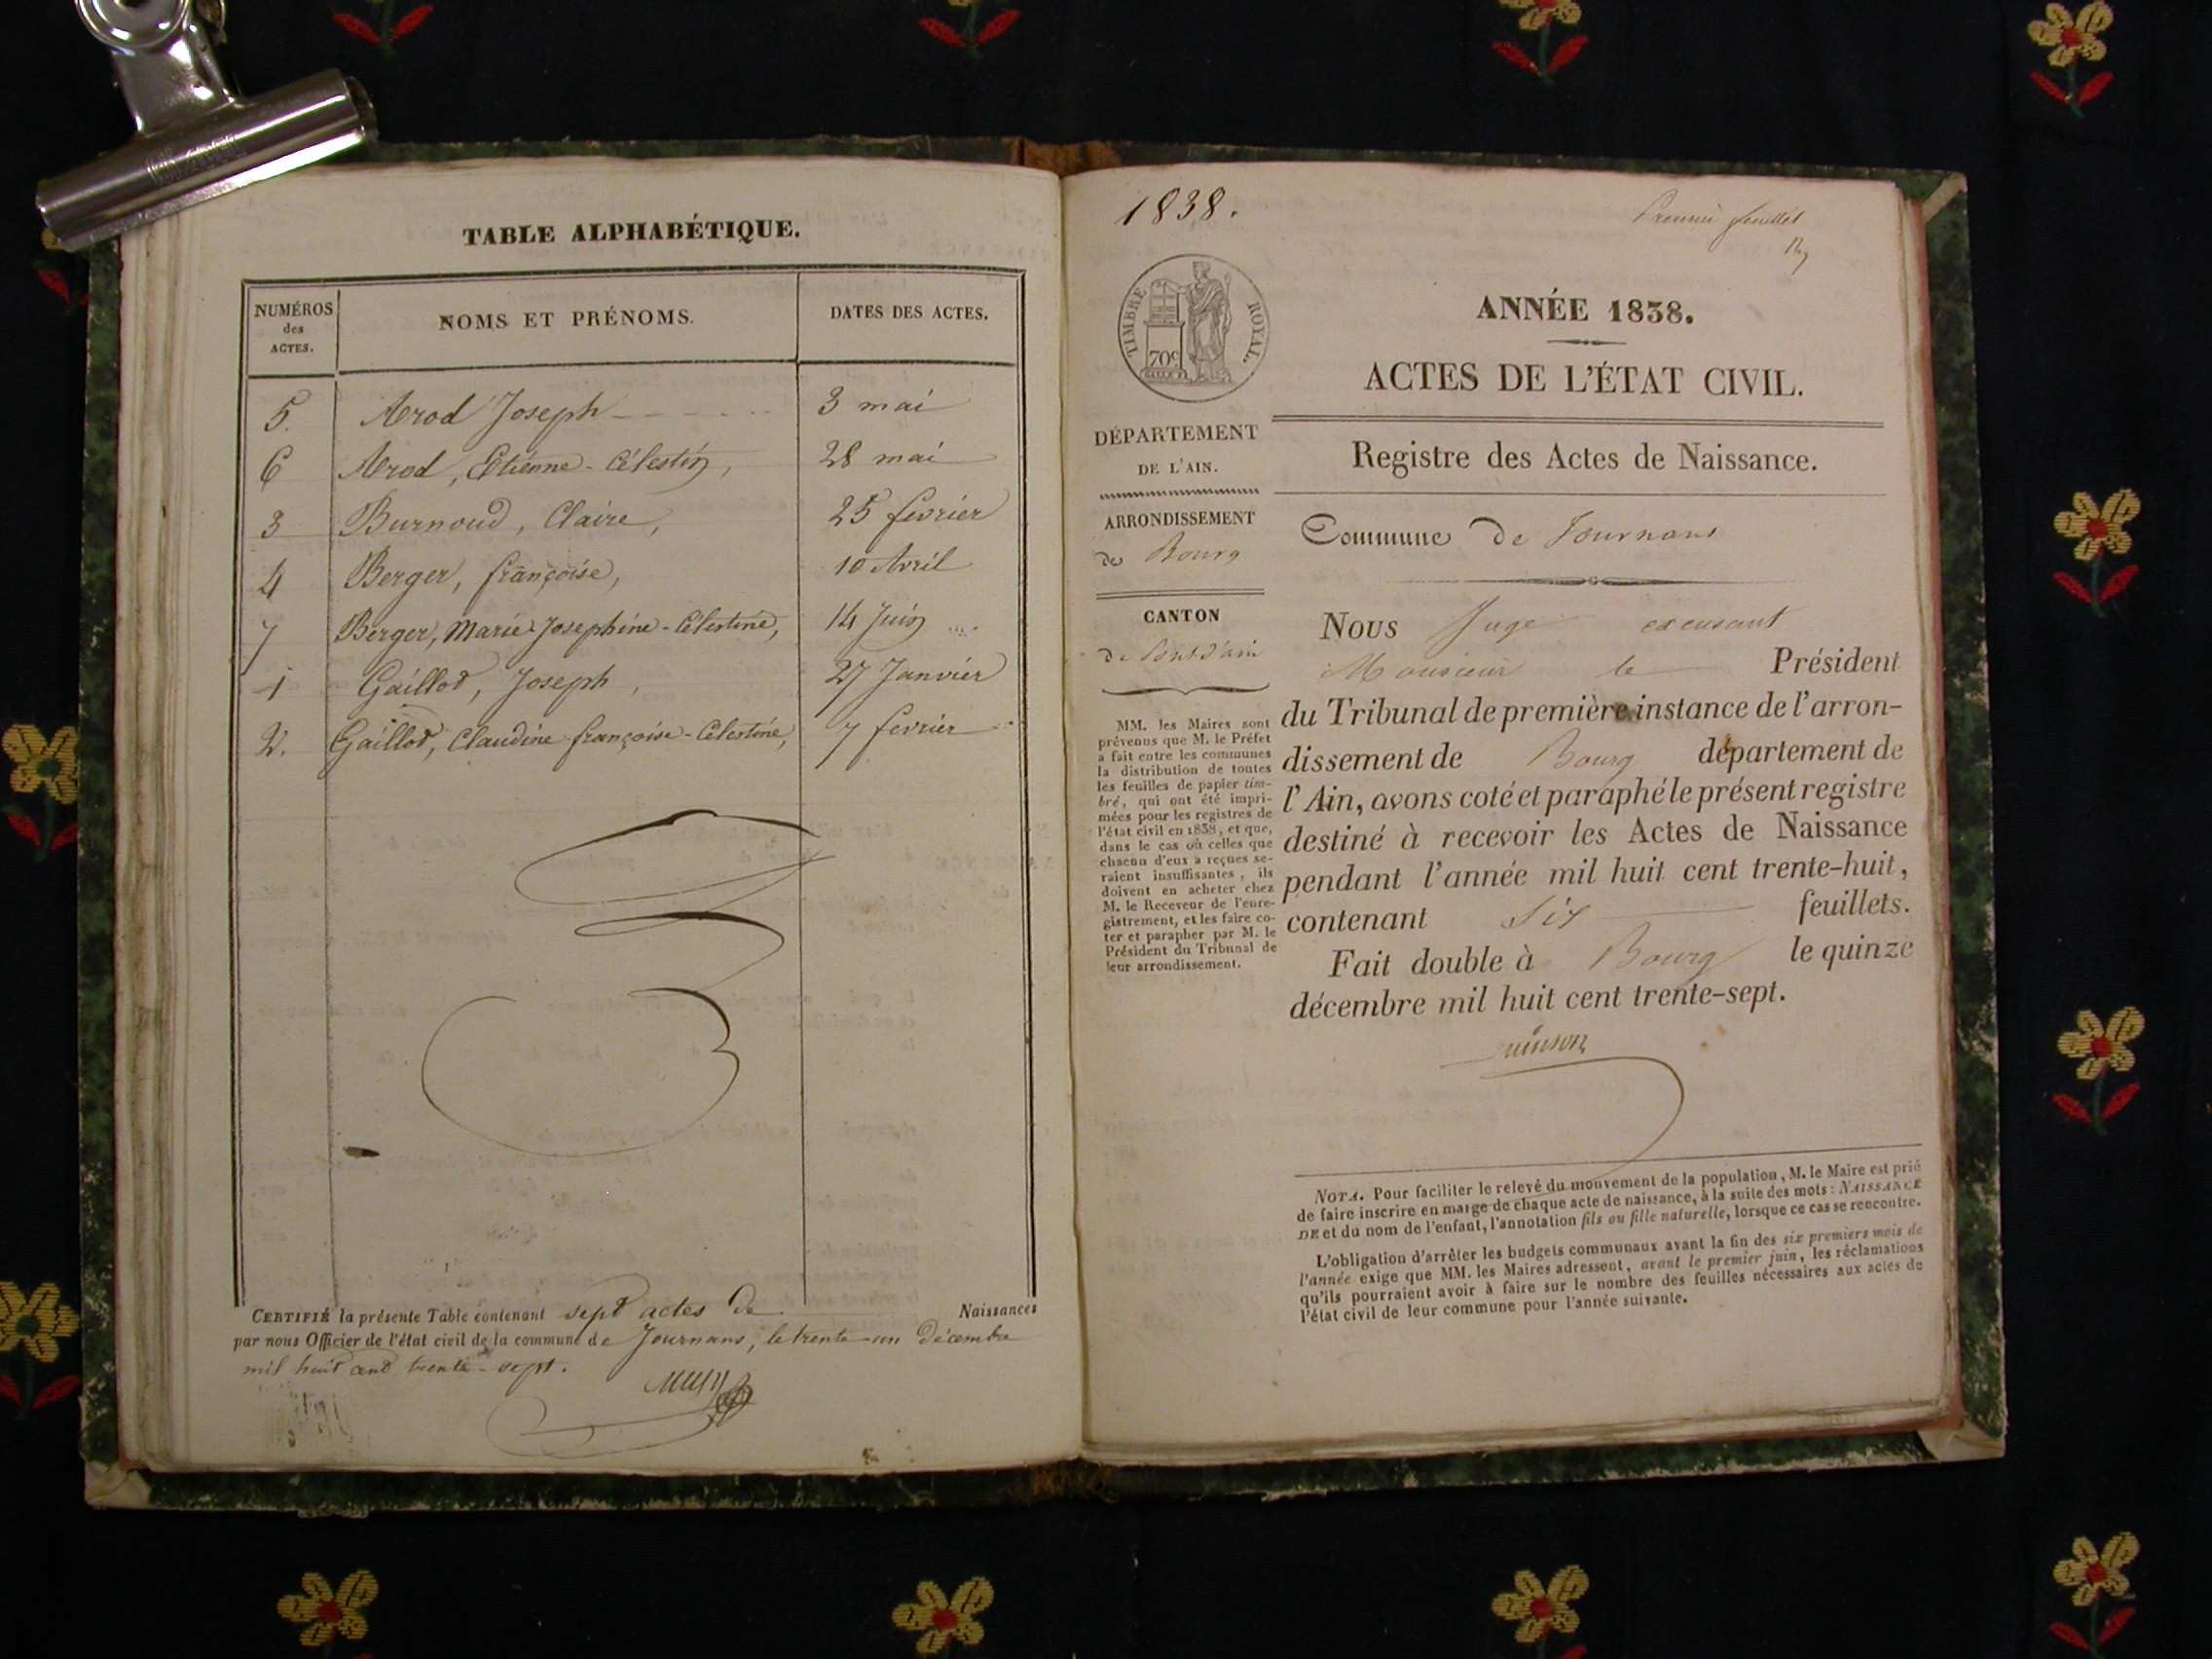 TABLE ALPHABÉTIQUE.
NUMÉROS des ACTES. NOMS ET PRÉNOMS. DATES DES ACTES.
5. Arod Joseph 3 mai
6 Arod, Etienne-Célestin, 28 mai
3 Burnoud, Claire, 25 fevrier
4 Berger, françoise, 10 Avril
7 Berger, Marie-Josephine-Célestine, 14 Juin
1 Gaillod, Joseph, 27 Janvier
2. Gaillod, Claudine françoise-Célestine, 7 fevrier
CERTIFIÉ la présente Table contenant sept actes de Naissances
par nous Officier de l'état civil de la commune de Journans, le trente-un Décembre
mil huit cent trente-sept.
1838.
Premier feuillet
TIMBRE ROYAL.
70c
DÉPARTEMENT
DE L'AIN.
ARRONDISSEMENT
de Bourg
CANTON
de Pont d'ain
MM. les Maires sont
prévenus que M. le Préfet
a fait entre les communes
la distribution de toutes
les feuilles de papier tim-
bré, qui ont été impri-
mées pour les registres de
l'état civil en 1838, et que,
dans le cas où celles que
chacun d'eux a reçues se-
raient insuffisantes, ils
doivent en acheter chez
M. le Receveur de l'enre-
gistrement, et les faire co-
ter et parapher par M. le
Président du Tribunal de
leur arrondissement.
ANNÉE 1838.
ACTES DE L'ÉTAT CIVIL.
Registre des Actes de Naissance.
Commune de Journans
Nous Juge excusant
Monsieur le Président
du Tribunal de première instance de l'arron-
dissement de Bourg département de
l'Ain, avons coté et paraphé le présent registre
destiné à recevoir les Actes de Naissance
pendant l'année mil huit cent trente-huit,
contenant Six feuillets.
Fait double à Bourg le quinze
décembre mil huit cent trente-sept.
NOTA. Pour faciliter le relevé du mouvement de la population, M. le Maire est prié
de faire inscrire en marge de chaque acte de naissance, à la suite des mots: NAISSANCE
DE et du nom de l'enfant, l'annotation fils ou fille naturelle, lorsque ce cas se rencontre.
L'obligation d'arrêter les budgets communaux avant la fin des six premiers mois de
l'année exige que MM. les Maires adressent, avant le premier juin, les réclamations
qu'ils pourraient avoir à faire sur le nombre des feuilles nécessaires aux actes de
l'état civil de leur commune pour l'année suivante.